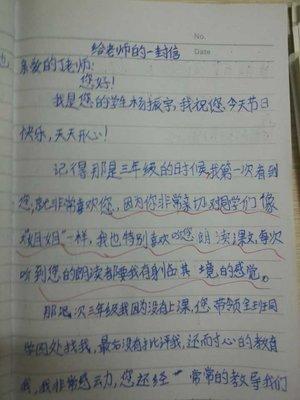 No.
Date
给老师的一封信
亲敬的丁老师:
您好!
我是您的学生杨振宗,我祝您今天节日
快乐,天天开心!
记得那是三年级的时候,我第一次看到
您,就非常喜欢您,因为你非常亲切对同学们像
"大姐姐"一样,我也特别喜欢听您朗读课文,每次
听到您的朗读都要我有身临其境的感觉。
那是次三年级我因为没有上课,您带领全班同
学四处找我,最后没有批评我,还而寸心的教育
我,我非常感动,您还经常常的教导我们